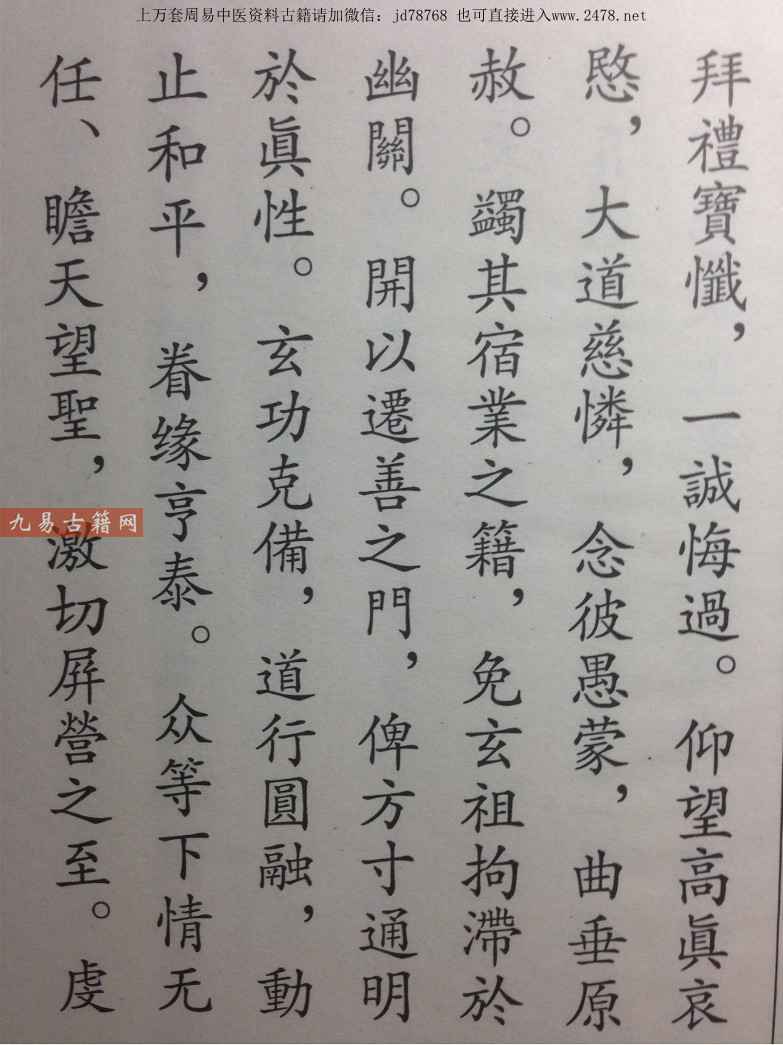 上万套周易中医资料古籍请加微信：jd78768 也可直接进入www.2478.net
拜禮寶懺，一誠悔過。仰望高眞哀
愍，大道慈憐，念彼愚蒙，曲垂原
赦。蠲其宿業之籍，免玄祖拘滯於
幽關。開以遷善之門，俾方寸通明
於眞性。玄功克備，道行圓融，動
止和平，眷缘亨泰。众等下情无
任、瞻天望聖，激切屏營之至。虔
九易古籍网